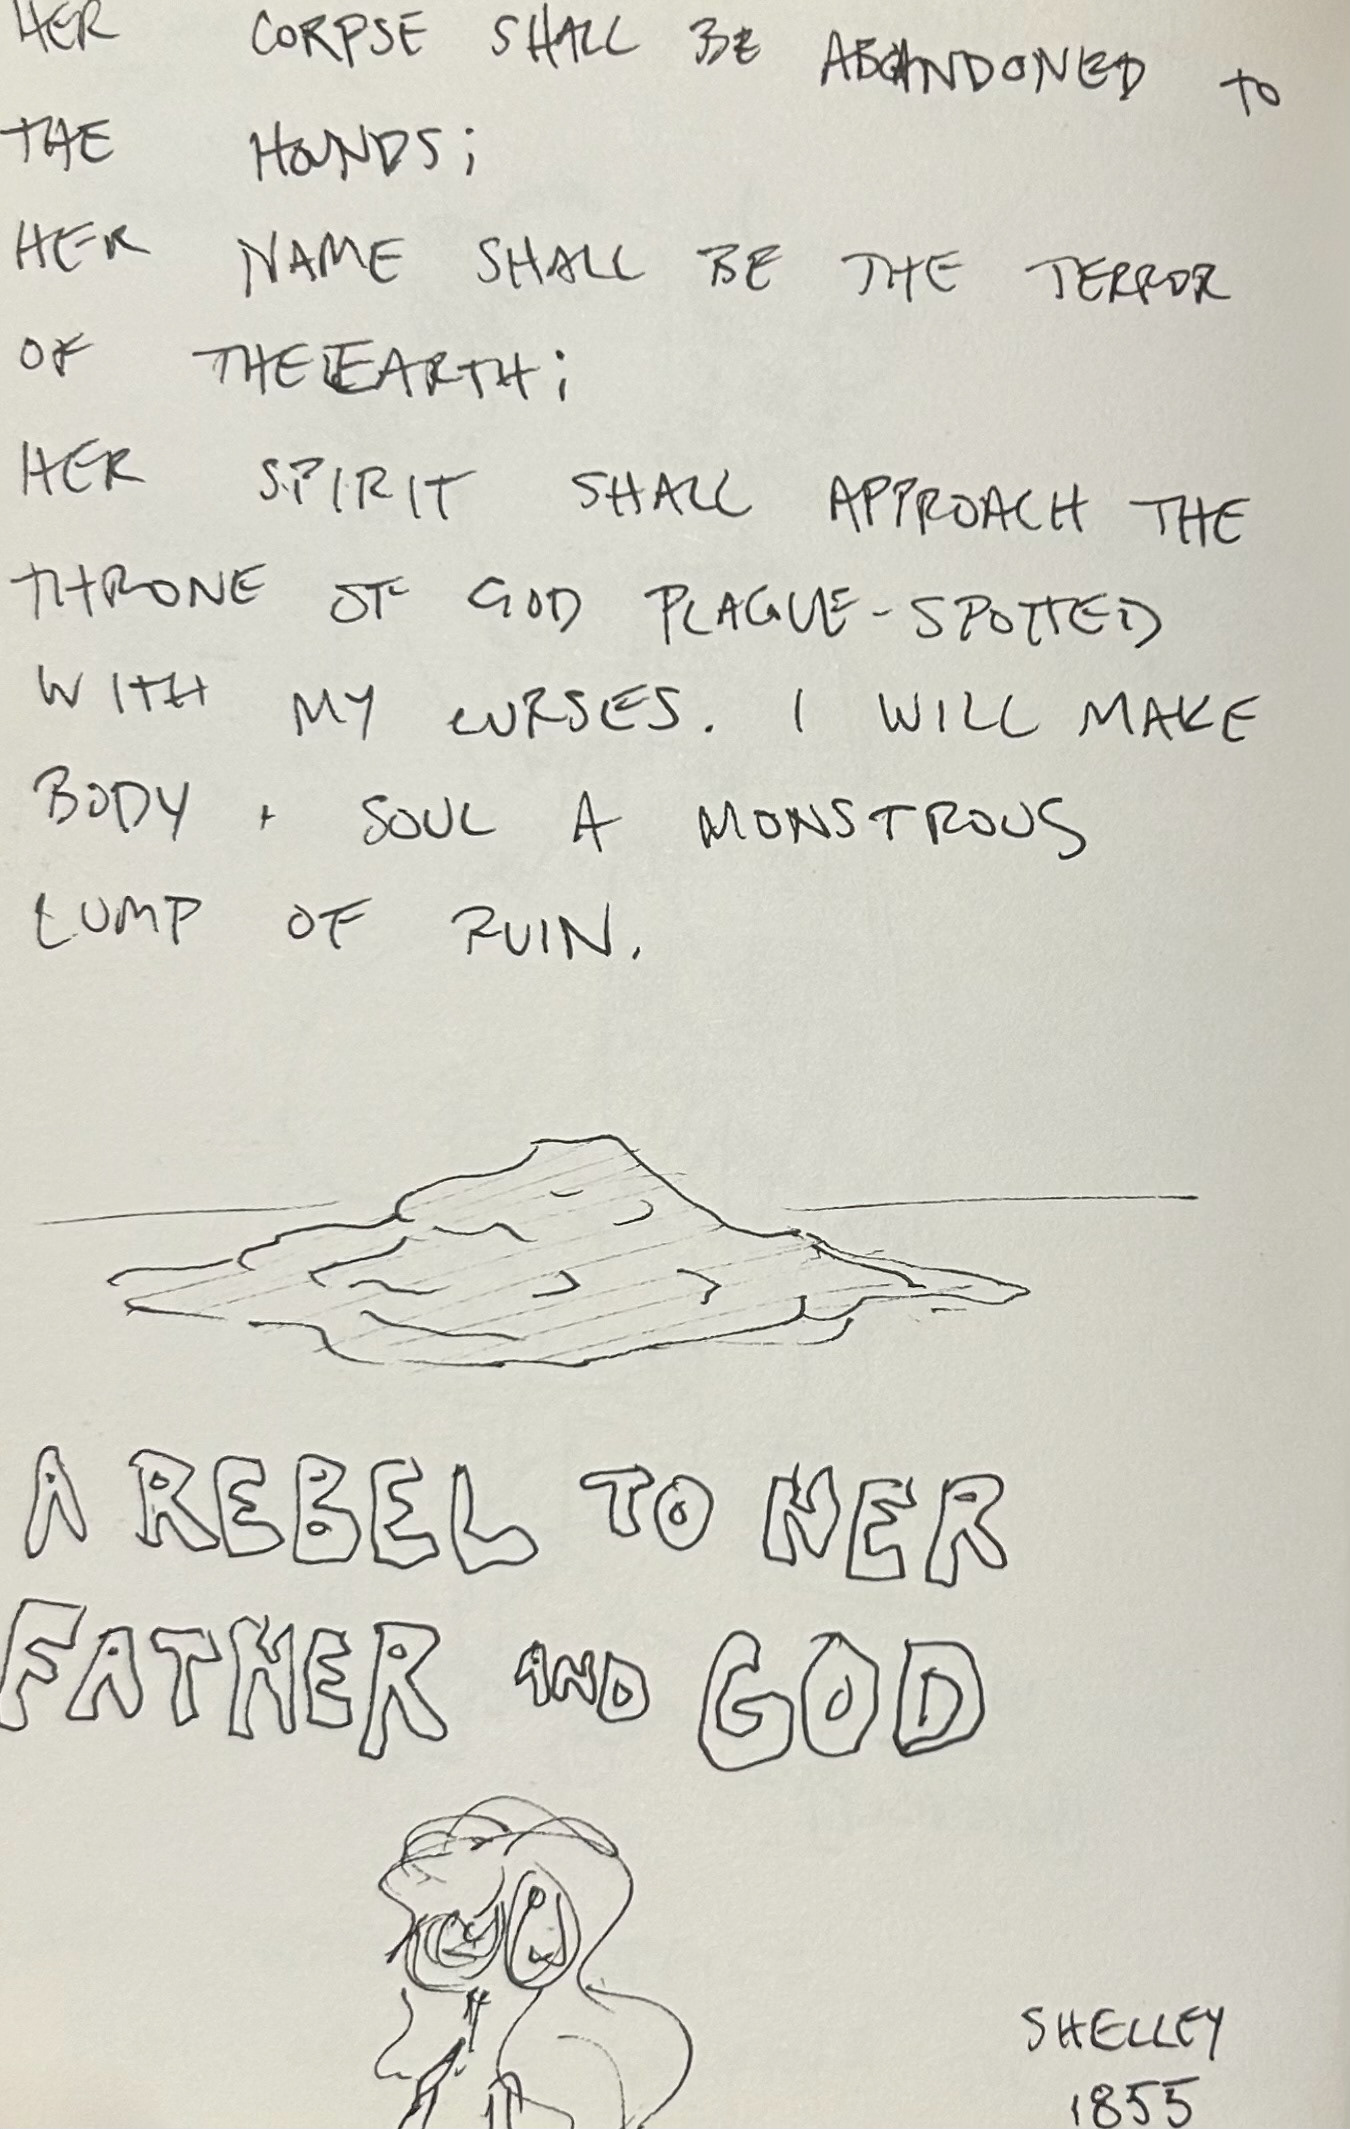 HER CORPSE SHALL BE ABANDONED TO
THE HOUNDS;
HER NAME SHALL BE THE TERROR
OF THE EARTH;
HER SPIRIT SHALL APPROACH THE
THRONE OF GOD PLAGUE-SPOTTED
WITH MY CURSES. I WILL MAKE
BODY + SOUL A MONSTROUS
LUMP OF RUIN.
A REBEL TO HER
FATHER AND GOD
SHELLEY
1855